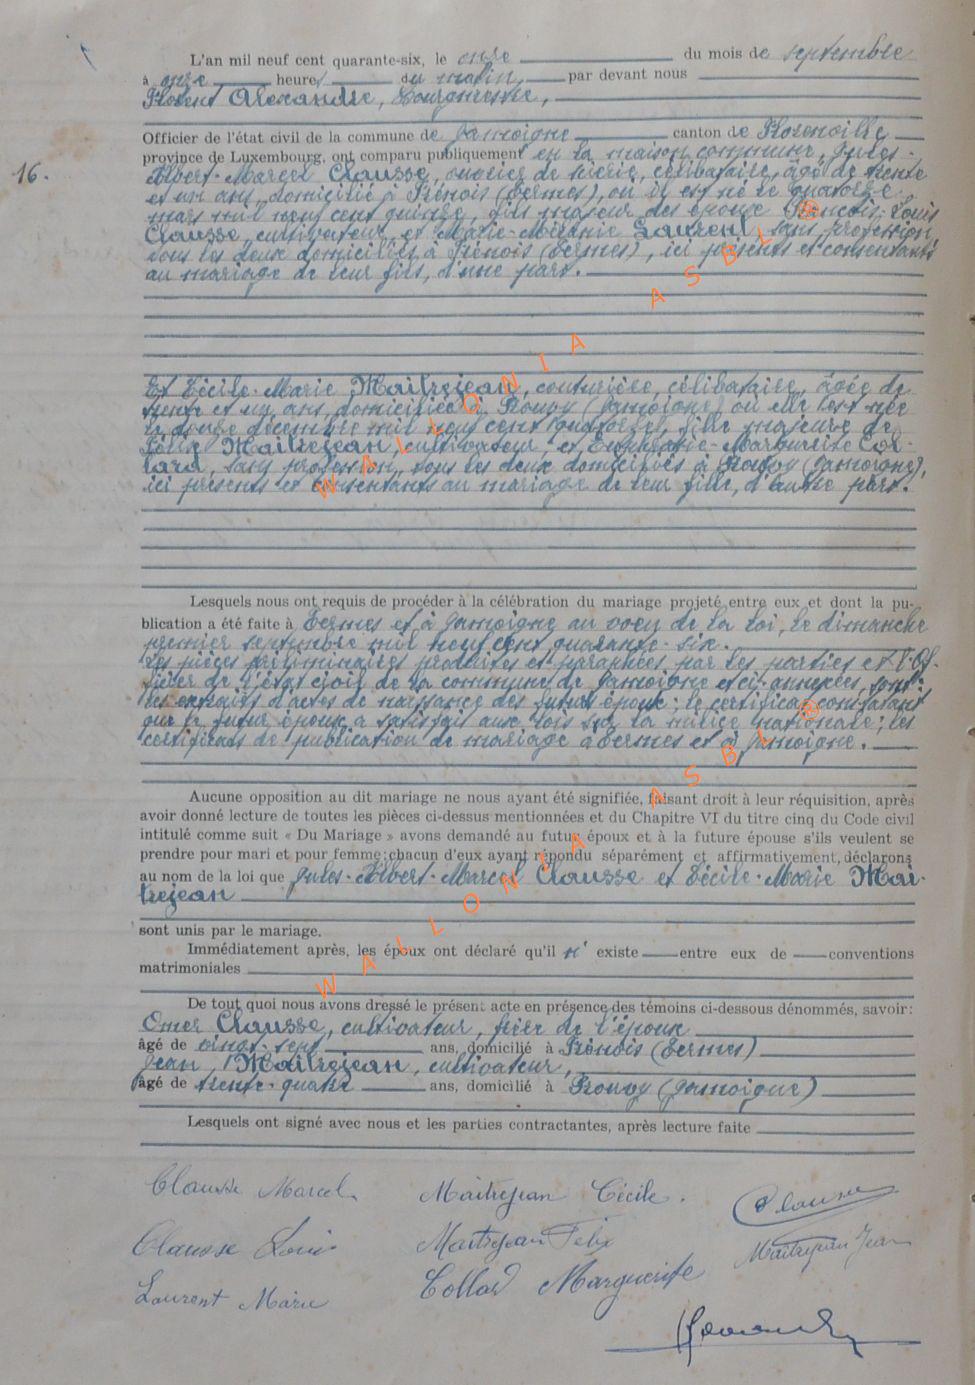 L'an mil neuf cent quarante-six, le onze du mois de septembre
à onze heures du matin, par devant nous
Florent Alexandre, Bourgmestre,
Officier de l'état civil de la commune de Jamoigne canton de Florenville
province de Luxembourg, ont comparu publiquement en la maison commune, Jules-
16.
Albert-Marcel Clausse, ouvrier de scierie, célibataire, âgé de trente
et un ans, domicilié à Frénois (Termes), où il est né le quatorze
mars mil neuf cent quinze, fils majeur des époux François-Louis
Clausse, cultivateur, et Marie-Mélanie Laurent, sans profession,
tous les deux domiciliés à Frénois (Termes), ici présents et consentants
au mariage de leur fils, d'une part.
Et Cécile-Marie Maitrejean, couturière, célibataire, âgée de
trente et un ans, domiciliée à Prouvy (Jamoigne) où elle est née
le douze décembre mil neuf cent quatorze, fille majeure de
Félix Maitrejean, cultivateur, et Euphrasie-Marguerite Col-
lard, sans profession, tous les deux domiciliés à Prouvy (Jamoigne),
ici présents et consentants au mariage de leur fille, d'autre part.
Lesquels nous ont requis de procéder à la célébration du mariage projeté entre eux et dont la pu-
blication a été faite à Termes et à Jamoigne au voeu de la loi, le dimanche
premier septembre mil neuf cent quarante-six.
Les pièces préliminaires produites et paraphées par les parties et l'Of-
ficier de l'état civil de la commune de Jamoigne et ci-annexées, sont:
les extraits d'actes de naissance des futurs époux; le certificat constatant
que le futur époux a satisfait aux lois sur la milice nationale; les
certificats de publication de mariage à Termes et à Jamoigne.
Aucune opposition au dit mariage ne nous ayant été signifiée, faisant droit à leur réquisition, après
avoir donné lecture de toutes les pièces ci-dessus mentionnées et du Chapitre VI du titre cinq du Code civil
intitulé comme suit « Du Mariage » avons demandé au futur époux et à la future épouse s'ils veulent se
prendre pour mari et pour femme; chacun d'eux ayant répondu séparément et affirmativement, déclarons
au nom de la loi que Jules-Albert-Marcel Clausse et Cécile-Marie Mai-
trejean
sont unis par le mariage.
Immédiatement après, les époux ont déclaré qu'il n' existe entre eux de conventions
matrimoniales
De tout quoi nous avons dressé le présent acte en présence des témoins ci-dessous dénommés, savoir:
Omer Clausse, cultivateur, frère de l'époux
âgé de vingt-sept ans, domicilié à Frénois (Termes)
Jean Maitrejean, cultivateur,
âgé de trente-quatre ans, domicilié à Prouvy (Jamoigne)
Lesquels ont signé avec nous et les parties contractantes, après lecture faite
Clausse Marcel Maitrejean Cécile. Clausse
Clausse Louis Maitrejean Félix Maitrejean Jean
Laurent Marie Collard Marguerite
WALLONIA ASBL
WALLONIA ASBL